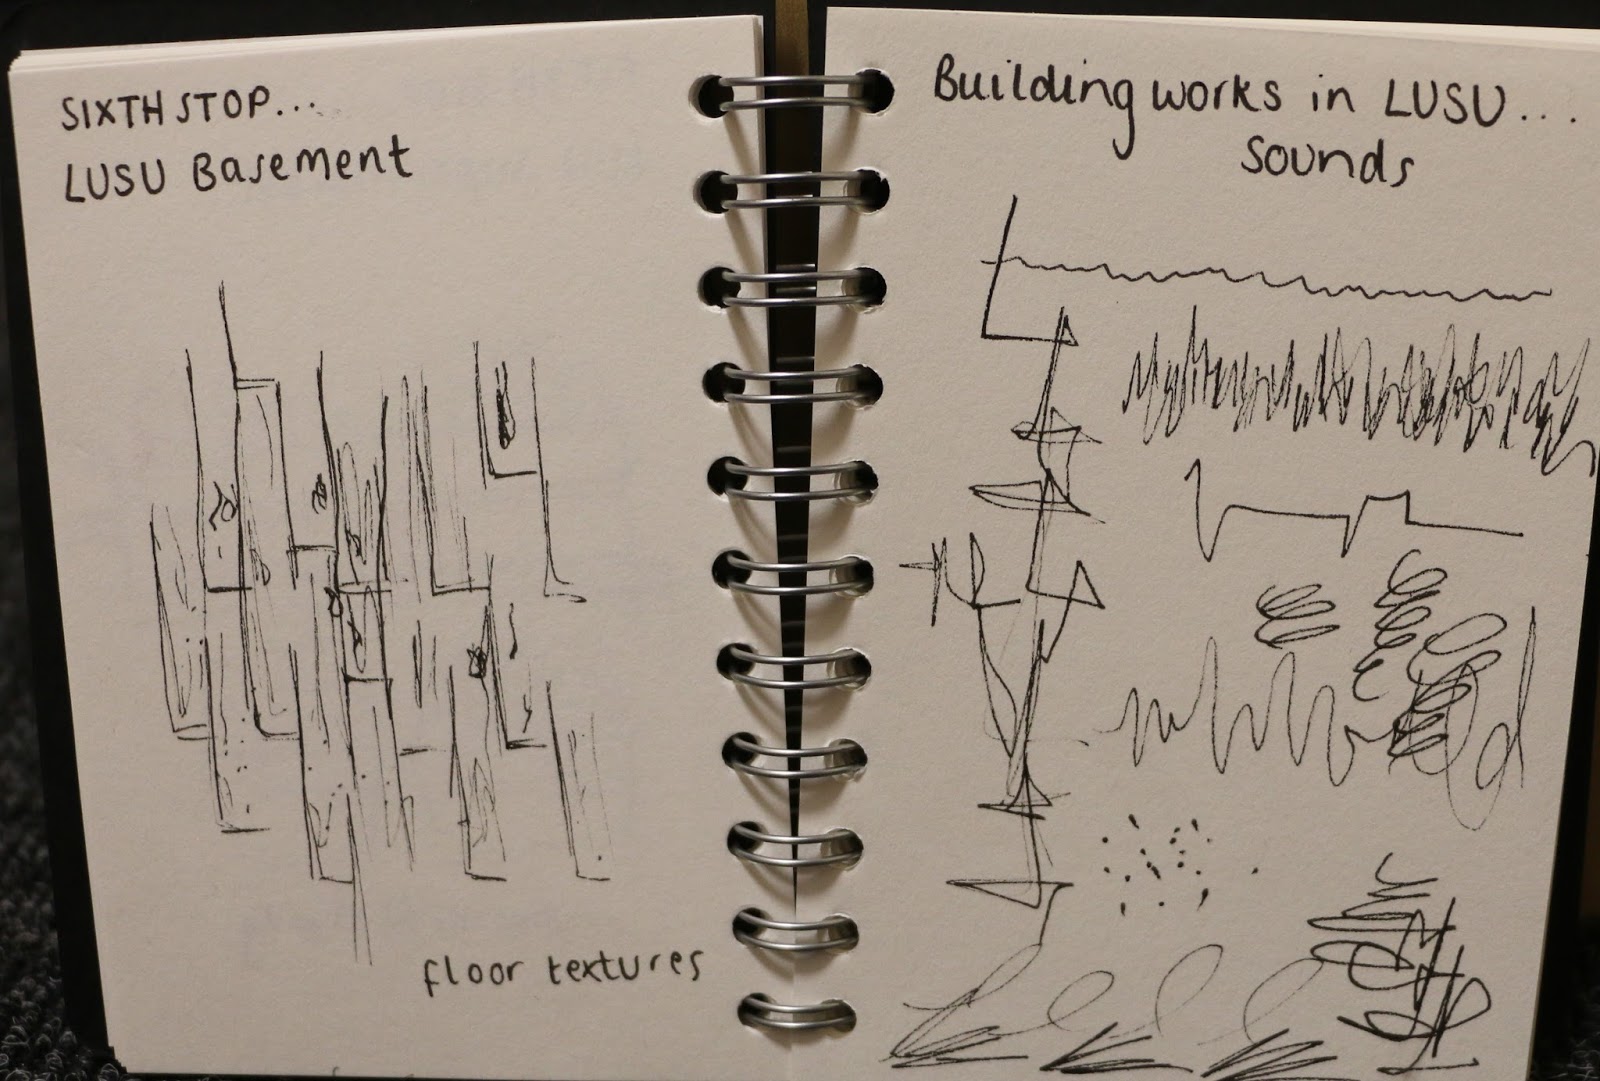 SIXTH STOP...
LUSU Basement
floor textures
Building works in LUSU...
Sounds